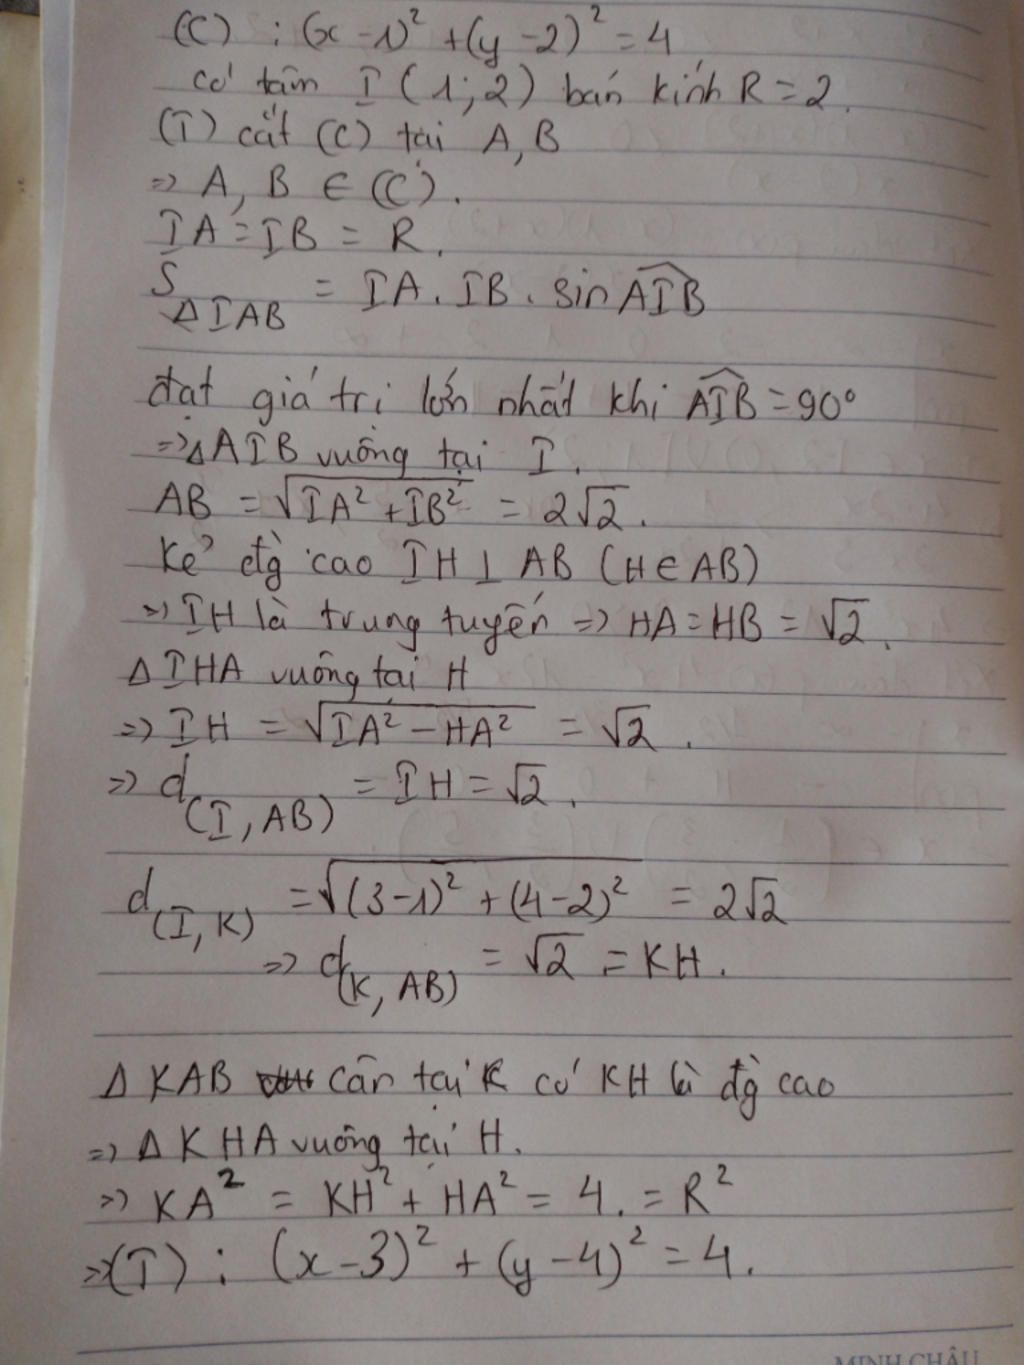 (C) : (x-1)² + (y-2)² = 4
có tâm I (1;2) bán kính R = 2.
(T) cắt (C) tại A, B
=> A, B ∈ (C).
IA = IB = R.
S ΔIAB = IA . IB . sin AIB
đạt giá trị lớn nhất khi AIB = 90°
=> Δ AIB vuông tại I.
AB = √(IA² + IB²) = 2√2.
Kẻ đg cao IH ⊥ AB (H ∈ AB)
=> IH là trung tuyến => HA = HB = √2.
Δ IHA vuông tại H
=> IH = √(IA² - HA²) = √2.
=> d(I, AB) = IH = √2.
d(I, K) = √((3-1)² + (4-2)²) = 2√2
=> d(K, AB) = √2 = KH.
Δ KAB cân tại K có KH là đg cao
=> Δ KHA vuông tại H.
=> KA² = KH² + HA² = 4. = R²
=> (T) : (x-3)² + (y-4)² = 4.
MINH CHÂU